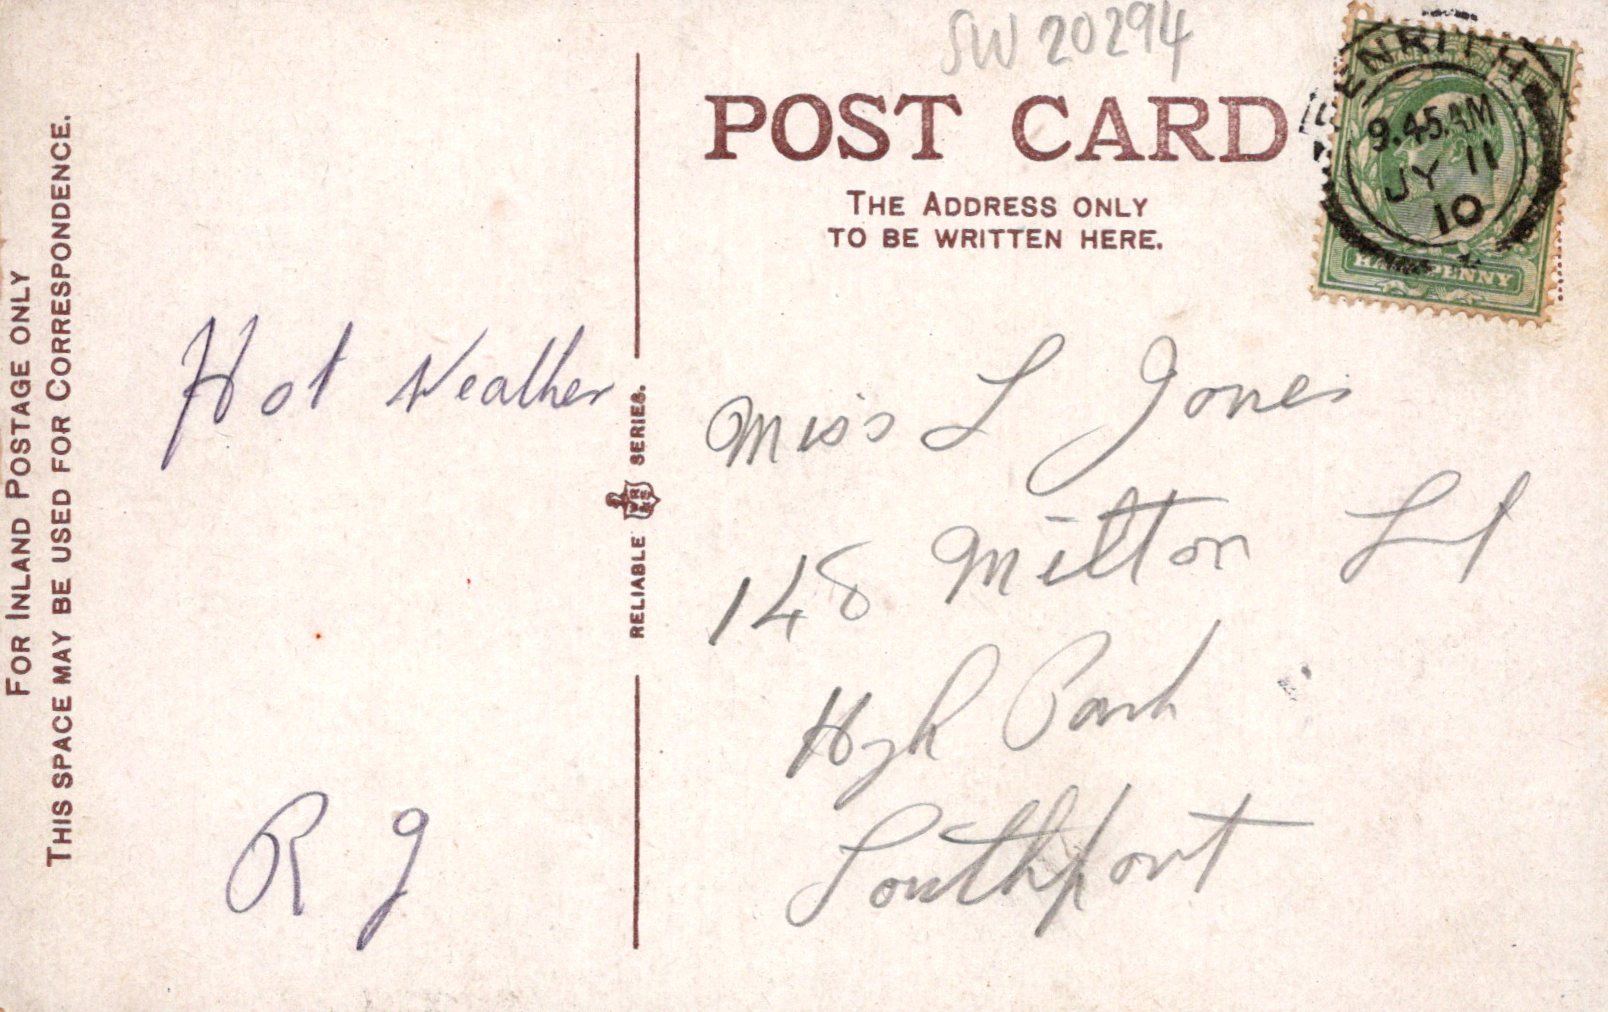 SW 20294
POST CARD
THE ADDRESS ONLY
TO BE WRITTEN HERE.
PENRITH
9.45AM
JY 11
10
HALFPENNY
FOR INLAND POSTAGE ONLY
THIS SPACE MAY BE USED FOR CORRESPONDENCE.
Hot Weather
R J
RELIABLE WR&S SERIES.
Miss L Jones
148 Milton St
High Park
Southport